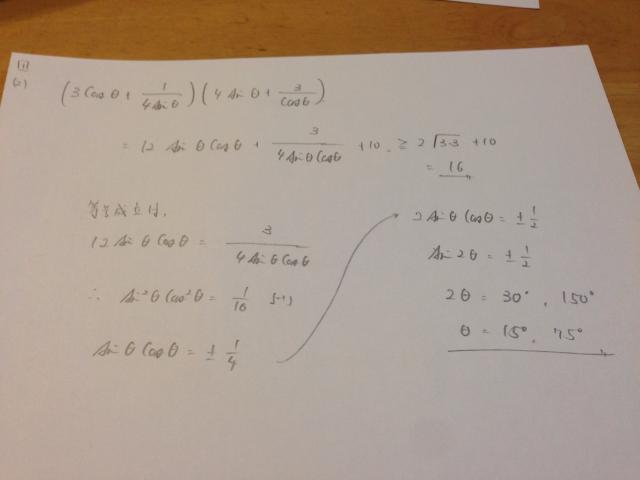 [1]
(2)
(3 cos θ + 1/(4 sin θ)) (4 sin θ + 3/cos θ)
= 12 sin θ cos θ + 3/(4 sin θ cos θ) + 10 ≥ 2√(3·3) + 10
= 16
等号成立は、
12 sin θ cos θ = 3/(4 sin θ cos θ)
∴ sin²θ cos²θ = 1/16
sin θ cos θ = ± 1/4
2 sin θ cos θ = ± 1/2
sin 2θ = ± 1/2
2θ = 30°, 150°
θ = 15°, 75°